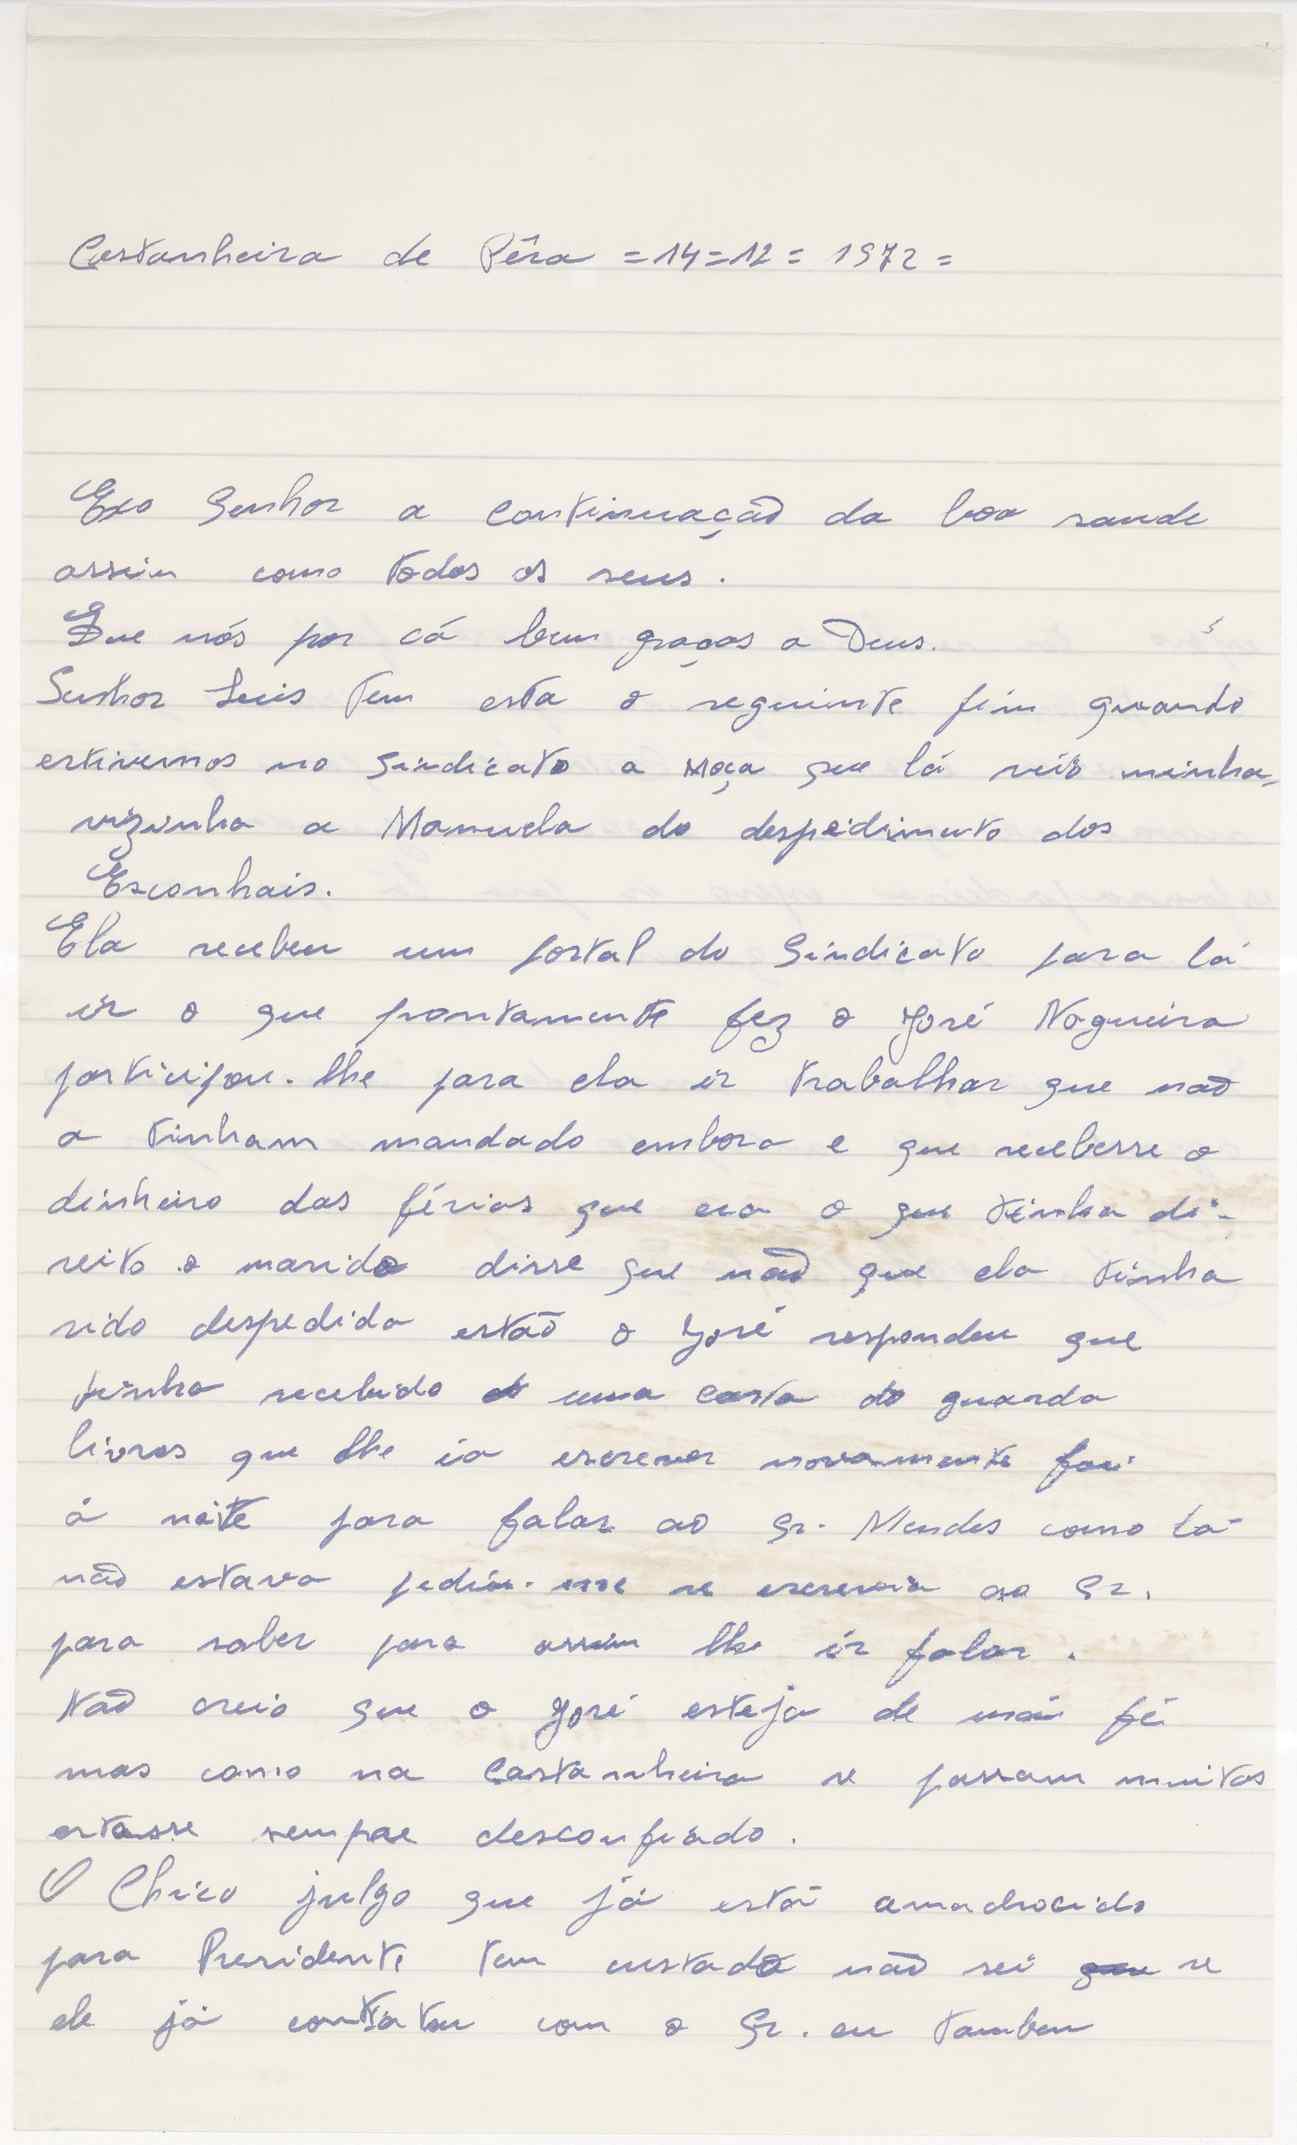 Castanheira de Pêra =14=12= 1972=
Exo Senhor a continuação da boa saude
assim como todos os seus.
Que nós por cá bem graças a Deus.
Senhor Luis tem esta o seguinte fim quando
estivemos no Sindicato a moça que lá veis minha
vizinha a Manuela do despedimento dos
Esconhais.
Ela recebeu um postal do Sindicato para lá
ir o que prontamente fez o José Nogueira
participou-lhe para ela ir trabalhar que não
a tinham mandado embora e que recebesse o
dinheiro das férias que era o que tinha di-
reito o marido disse que não que ela tinha
sido despedida estão o José respondeu que
tinha recebido uma carta do guarda
livros que lhe ia escrever novamente foi
á noite para falar ao Sr. Mendes como lá
não estava pediu-me se escrevia ao Sr.
para saber para assim lhe ir falar.
Não creio que o José esteja de má fé
mas como na Castanheira se passam muitas
estasse sempre desconfiado.
O Chico julgo que já está amadrocido
para Presidente tem custado não sei que se
ele já contatou com o Sr. eu tambem